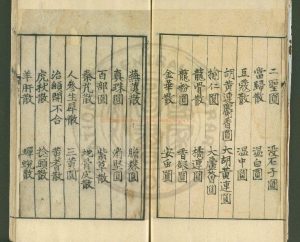 二聖圓
沒石子圓
當歸散
溫白圓
豆蔻散
溫中圓
胡黃連麝香圓
大胡黃連圓
榆仁圓
大蘆薈圓
龍骨散
橘連圓
龍粉圓
香銀圓
金華散
安蟲圓
蕪荑散
膽礬圓
真珠圓
消堅圓
百部圓
紫菀散
秦艽散
地骨皮散
人參生犀散
三黃圓
治顖開不合
黃耆散
虎杖散
捻頭散
羊肝散
蟬蛻散